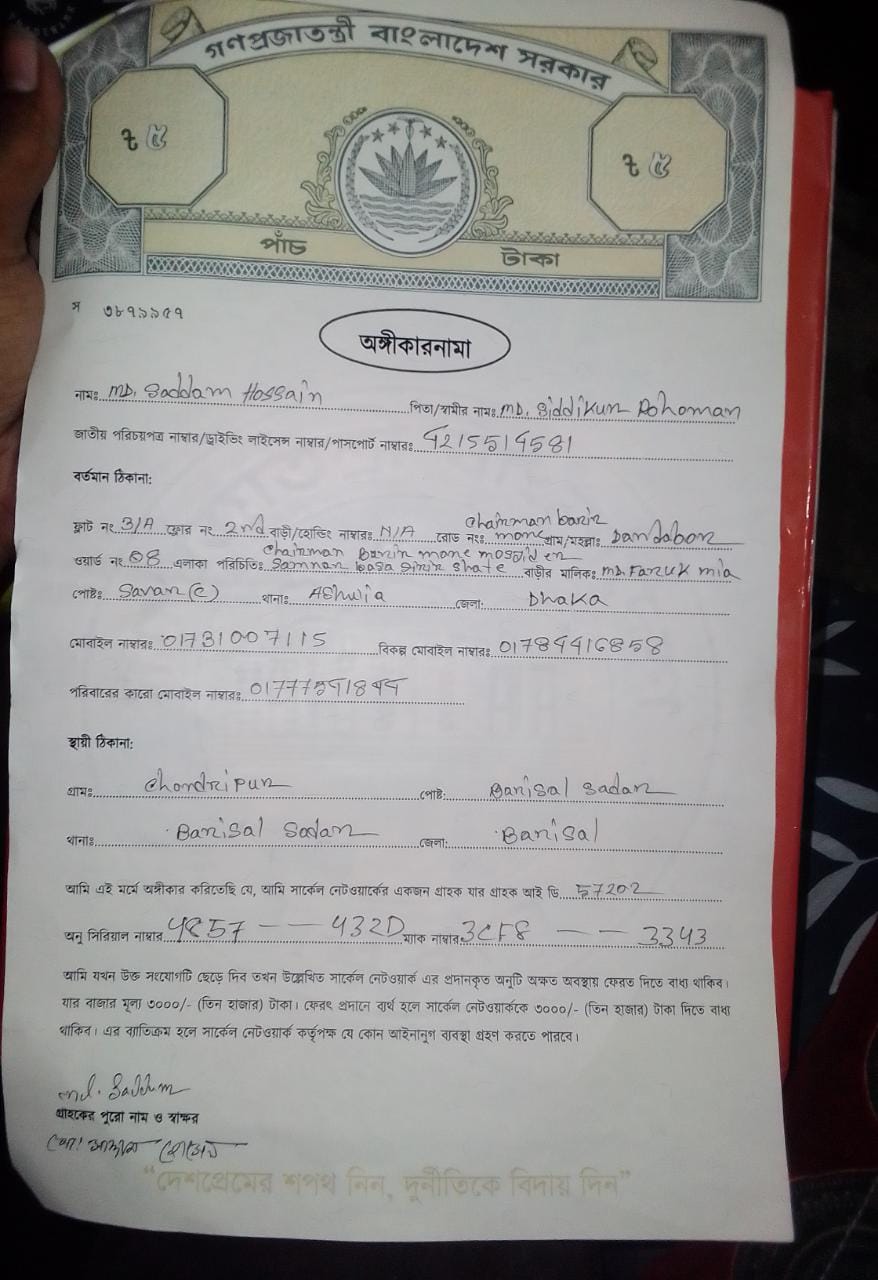 গণপ্রজাতন্ত্রী বাংলাদেশ সরকার
৳ ৫ ৳ ৫
পাঁচ টাকা
স ৩৮৭৯৯৫৭
অঙ্গীকারনামা
নামঃ MD. Saddam Hossain পিতা/স্বামীর নামঃ MD. Siddikur Rohoman
জাতীয় পরিচয়পত্র নাম্বার/ড্রাইভিং লাইসেন্স নাম্বার/পাসপোর্ট নাম্বারঃ
বর্তমান ঠিকানা:
chairman barir
ফ্লাট নং 3/A ফ্লোর নং 2nd বাড়ী/হোল্ডিং নাম্বারঃ N/A রোড নংঃ mone গ্রাম/মহল্লাঃ Dandabor
chairman Barir mone mosjid er
ওয়ার্ড নং 08 এলাকা পরিচিতিঃ Samnar basa বাড়ীর মালিকঃ MD. Faruk mia
পোষ্টঃ Savar (C) থানাঃ Ashulia জেলা: Dhaka
মোবাইল নাম্বারঃ 01731007115 বিকল্প মোবাইল নাম্বারঃ 01784416858
পরিবারের কারো মোবাইল নাম্বারঃ
স্থায়ী ঠিকানা:
গ্রামঃ Chondripur পোষ্ট: Barisal Sadar
থানাঃ Barisal Sadar জেলা: Barisal
আমি এই মর্মে অঙ্গীকার করিতেছি যে, আমি সার্কেল নেটওয়ার্কের একজন গ্রাহক যার গ্রাহক আই ডি 57202
অনু সিরিয়াল নাম্বার 4857 -- 432D ম্যাক নাম্বার 3CF8 -- 3343
আমি যখন উক্ত সংযোগটি ছেড়ে দিব তখন উল্লেখিত সার্কেল নেটওয়ার্ক এর প্রদানকৃত অনুটি অক্ষত অবস্থায় ফেরত দিতে বাধ্য থাকিব।
যার বাজার মূল্য ৩০০০/- (তিন হাজার) টাকা। ফেরৎ প্রদানে ব্যর্থ হলে সার্কেল নেটওয়ার্ককে ৩০০০/- (তিন হাজার) টাকা দিতে বাধ্য
থাকিব। এর ব্যতিক্রম হলে সার্কেল নেটওয়ার্ক কর্তৃপক্ষ যে কোন আইনানুগ ব্যবস্থা গ্রহণ করতে পারবে।
md. Saddam
গ্রাহকের পুরো নাম ও স্বাক্ষর
মোঃ সাদ্দাম হোসেন
“দেশপ্রেমের শপথ নিন, দুর্নীতিকে বিদায় দিন”